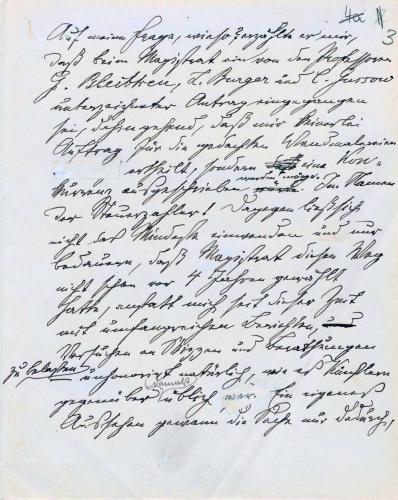 4a 3
Auf meine Frage, wieso? erzählte er mir,
daß beim Magistrat ein von den Professoren
G. Bleibtreu, L. Burger und C. Gussow
unterzeichneter Antrag eingegangen
sei, dahingehend, daß mir keinerlei
Auftrag für die gedachten Wandmalereien
ertheilt, sondern eine Kon-
kurrenz ausgeschrieben werden möge. Im Namen
der Steuerzahler! Dagegen ließ sich
nicht das Mindeste einwenden und nur
bedauern, daß Magistrat diesen Weg
nicht schon vor 4 Jahren gewählt
hatte, anstatt mich seit dieser Zeit
mit umfangreichen Berichten,
Versuchen an Skizzen und Bemühungen
zu belasten unhonorirt natürlich, wie es Künstlern
gegenüber damals üblich war. Ein eigenes
Aussehen gewann die Sache nur dadurch,